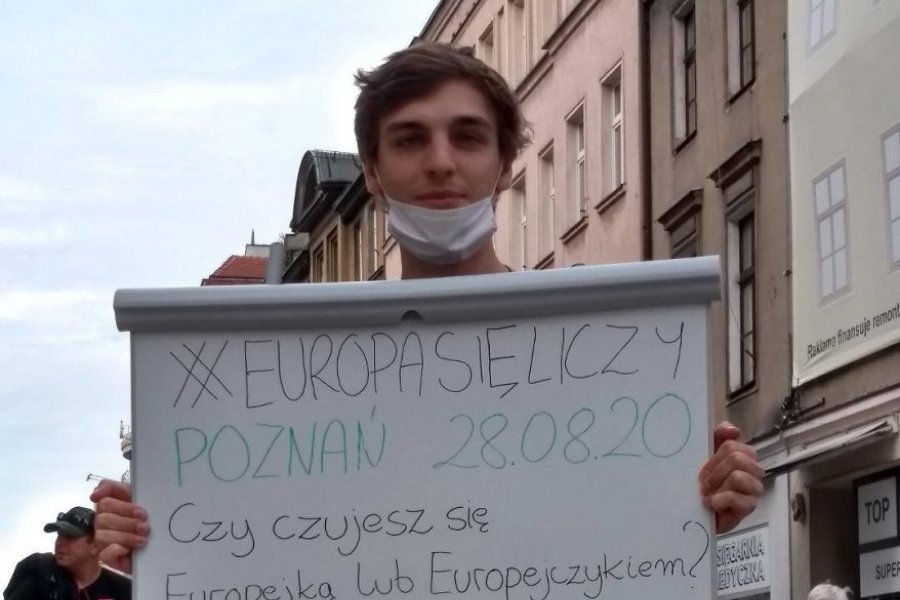 XX EUROPASIĘLICZY
POZNAŃ 28.08.20
Czy czujesz się
Europejką lub Europejczykiem?
Reklama finansuje remont
TOP
SUPER